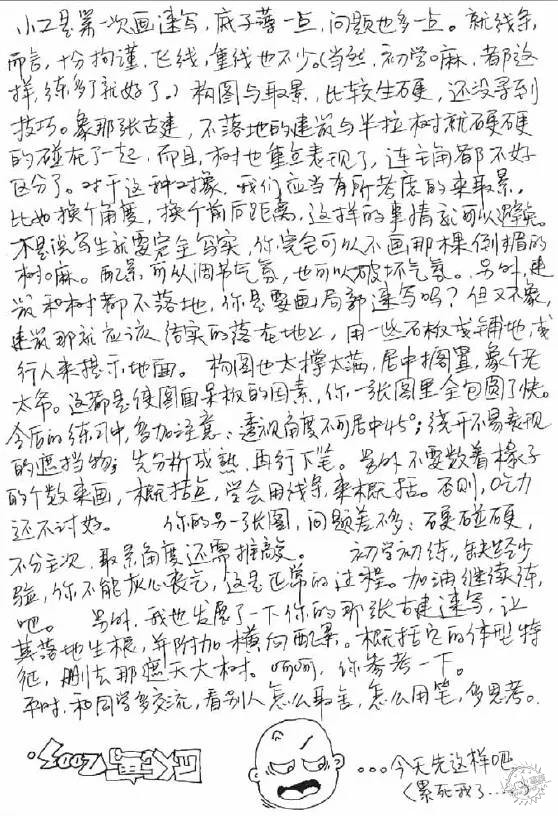 小工是第一次画速写，底子薄一点，问题也多一点。就线条，
而言，十分拘谨，飞线，重线也不少。（当然，初学嘛，都这
样，练多了就好了。）构图与取景，比较生硬，还没寻到
技巧。象那张古建，不落地的建筑与半拉树就硬硬
的碰在了一起，而且，树也重点表现了，连主角都不好
区分了。对于这种对象，我们应当有所考虑的来取景。
比如换个角度，换个前后距离，这样的事情就可以避免。
不是说写生就要完全写实，你完全可以不画那棵倒楣的
树嘛。配景可以调节气氛，也可以破坏气氛。另外，建
筑和树都不落地，你是要画局部速写吗？但又不象，
建筑那就应该结实的落在地上，用一些石板或铺地，或
行人来提示地面。构图也太撑太满，居中搁置，象个老
太爷。这都是使图面呆板的因素，你一张图里全包圆了快。
今后的练习中，多加注意：透视角度不可居中45°；绕开不易表现
的遮挡物；先分析成熟，再行下笔。另外不要数着椽子
的个数来画，概括点，学会用线条来概括。否则，吃力
还不讨好。 你的另一张图，问题差不多：硬碰硬，
不分主次，取景角度还需推敲。 初学初练，缺经少
验，你不能放心丧气，这是正常的过程。加油继续练，
吧。 另外，我也发愿了一下你的那张古建速写，让
其落地生根，并附加横向配景。概括它的体型特
征，删去那遮天大树。呵呵，你参考一下。
平时，和同学多交流，看别人怎么取舍，怎么用笔，多思考。
…今天先这样吧
（累死我了……）